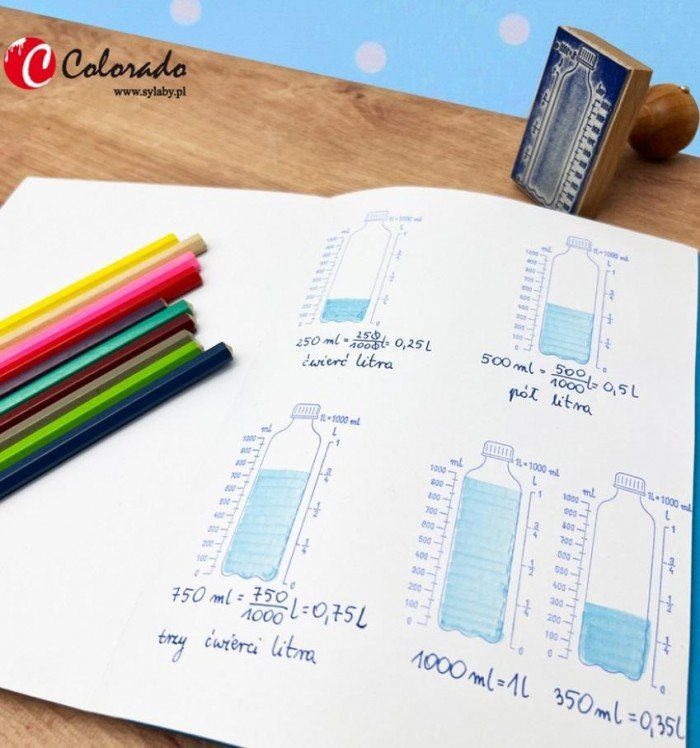 Colorado
www.sylaby.pl
1L = 1000 ml
ml
L
1000
900
800
700
600
500
400
300
200
100
0
1
3/4
1/2
1/4
0
250 ml = 250/1000 l = 0,25 L
ćwierć litra
1L = 1000 ml
ml
L
1000
900
800
700
600
500
400
300
200
100
0
1
3/4
1/2
1/4
0
500 ml = 500/1000 l = 0,5 L
pół litra
1L = 1000 ml
ml
L
1000
900
800
700
600
500
400
300
200
100
0
1
3/4
1/2
1/4
0
750 ml = 750/1000 L = 0,75 L
trzy ćwierci litra
1L = 1000 ml
ml
L
1000
900
800
700
600
500
400
300
200
100
0
1
3/4
1/2
1/4
0
1000 ml = 1L
1L = 1000 ml
ml
L
1000
900
800
700
600
500
400
300
200
100
0
1
3/4
1/2
1/4
0
350 ml = 0,35L